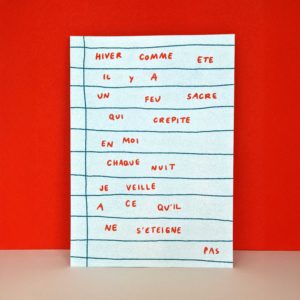 HIVER COMME ETE
IL Y A
UN FEU SACRE
QUI CREPITE
EN MOI
CHAQUE NUIT
JE VEILLE
A CE QU'IL
NE S'ETEIGNE
PAS